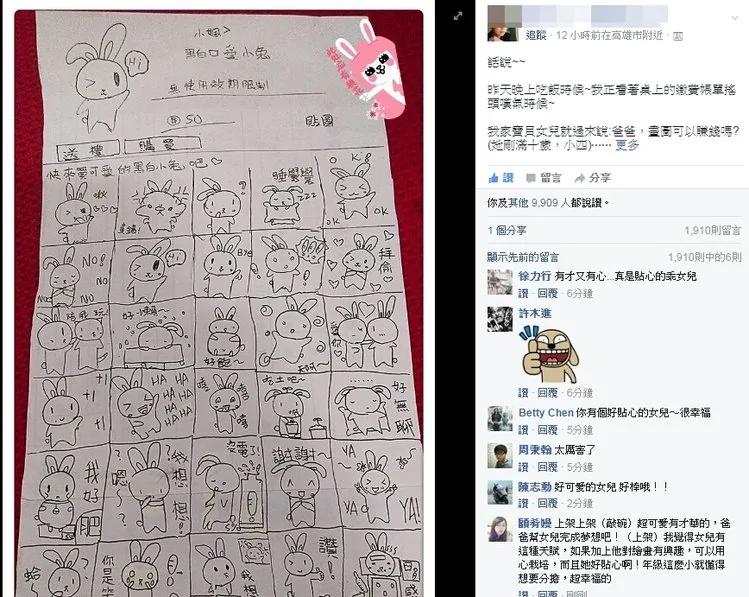 小姵>
黑白口愛小兔
無使用效期限制
50
貼圖
送禮
購買
快來買可愛的黑白小兔吧♡
Hi
啾
真鵝!
睡覺覺
zzz
OK!
OK
OK
NO!
NO
NO
Hi
BYe
拜偷
陪我玩!
好懶~
好飽~
愛你
+1
+1
+1
HA HA
HA HA
HA HA
HA
嘻嘻
嘻
吃土吧~
好無聊
我好肥
?嗯~?
我想想!
沒電了!
5%
謝謝~
YA~
YA!
蛤
你是笨
我想
讚!
追蹤 · 12 小時前在高雄市附近 ·
話說~~
昨天晚上吃飯時候~我正看著桌上的繳費帳單搖
頭嘆氣時候~
我家寶貝女兒就過來說:爸爸，畫圖可以賺錢嗎?
(她剛滿十歲，小四)...... 更多
讚 留言 分享
你及其他 9,909 人都說讚。
1 個分享
1,910則留言
顯示先前的留言
1,910則中的6則
徐力行 有才又有心...真是貼心的乖女兒
讚 · 回覆 · 6分鐘
許木進
讚 · 回覆 · 6分鐘
Betty Chen 你有個好貼心的女兒~很幸福
讚 · 回覆 · 5分鐘
周秉翰 太厲害了
讚 · 回覆 · 5分鐘
陳志動 好可愛的女兒 好棒哦！！
讚 · 回覆 · 2分鐘
顧肴嫚 上架上架（敲碗）超可愛有才華的，爸
爸幫女兒完成夢想吧！（上架）我覺得女兒有
這種天賦，如果加上他對繪畫有興趣，可以用
心栽培，而且她好貼心啊！年級這麼小就懂得
想要分擔，超幸福的
讚 · 回覆 · 剛剛